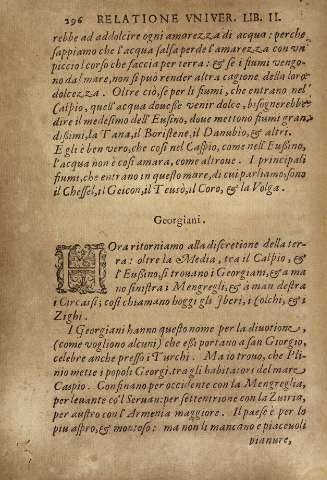 296 RELATIONE VNIVER. LIB. II.
rebbe ad addolcire ogni amarezza di acqua: perche
sappiamo che l'acqua salsa perde l'amarezza con vn
picciol corso che faccia per terra: & se i fiumi vengo-
no dal mare, non si può render altra cagione della loro
dolcezza. Oltre ciò, se per li fiumi, che entrano nel
Caspio, quell'acqua douesse venir dolce, bisognerebbe
dire il medesimo dell'Eusino, doue mettono fiumi gran
dißimi, la Tana, il Boristene, il Danubio, & altri.
E gli è ben vero, che così nel Caspio, come nell'Eusino,
l'acqua non è così amara, come altroue. I principali
fiumi, che entrano in questo mare, di cui parliamo, sono
il Chessel, il Geicon, il Teusò, il Coro, & la Volga.
Georgiani.
HOra ritorniamo alla discretione della ter-
ra: oltre la Media, tra il Caspio, &
l'Eusino, si trouano i Georgiani, & a ma
no sinistra i Mengregli, & à man destra
i Circassi; così chiamano hoggi gli Iberi, i Colchi, & i
Zighi.
I Georgiani hanno questo nome per la diuotione,
(come vogliono alcuni) che eßi portano a san Giorgio,
celebre anche presso i Turchi. Ma io trouo, che Pli-
nio mette i popoli Georgi, tra gli habitatori del mare
Caspio. Confinano per occidente con la Mengreglia,
per leuante co'l Seruan: per settentrione con la Zuiria,
per austro con l'Armenia maggiore. Il paese è per lo
piu aspro, & montoso: ma non li mancono e piaceuoli
pianure,